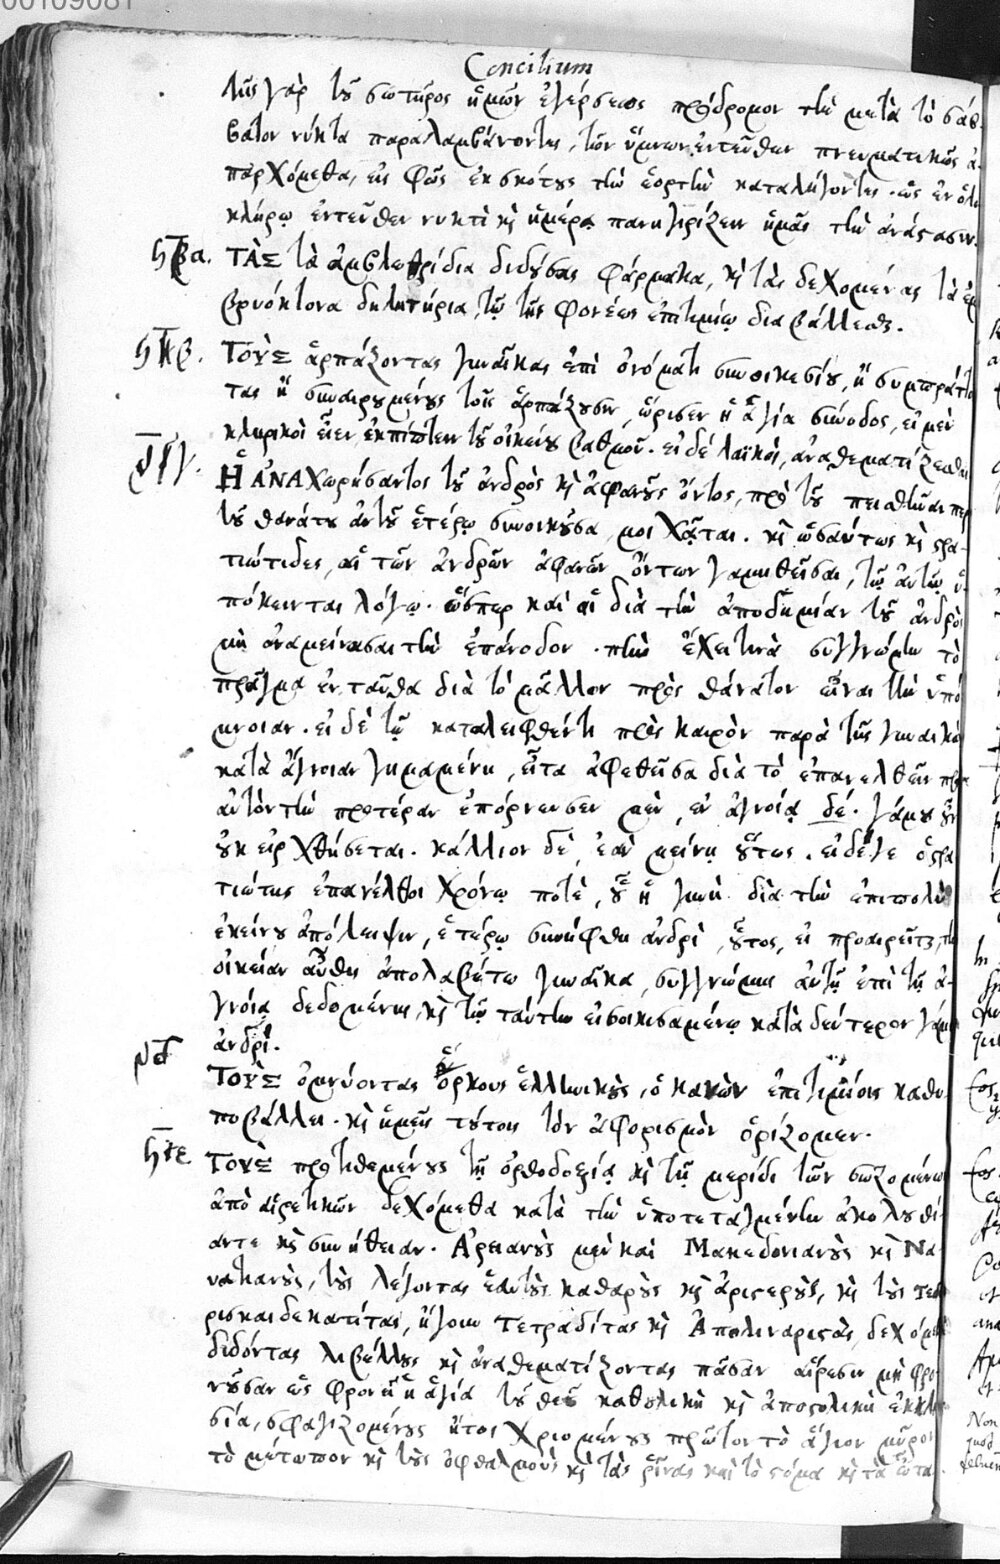 00109081
Concilium
τῆς γὰρ τοῦ σωτῆρος ἡμῶν ἐγέρσεως πρόδρομον τὴν μετὰ τὸ σάβ-
βατον νύκτα παραλαμβάνοντες, τῶν ὕμνων ἐντεῦθεν πνευματικῶς ἀ-
παρχόμεθα, εἰς φῶς ἐκ σκότους τὴν ἑορτὴν καταλήγοντες. ὡς ἐν ὁλο
κλήρῳ ἐντεῦθεν νυκτὶ καὶ ἡμέρᾳ πανηγυρίζειν ἡμᾶς τὴν ἀνάστασιν.
ΤᾺΣ τὰ ἀμβλωθρίδια διδούσας φάρμακα, καὶ τὰς δεχομένας τὰ ἐμ
βρυόκτονα δηλητήρια, τῷ τῆς φονέως ἐπιτιμίῳ διαβάλλεσθαι.
ΤΟῪΣ ἁρπάζοντας γυναῖκας ἐπὶ ὀνόματι συνοικεσίου, ἢ συμπράττον
τας ἢ συναιρουμένους τοῖς ἁρπάζουσιν, ὥρισεν ἡ ἁγία σύνοδος, εἰ μὲν
κληρικοὶ εἶεν, ἐκπίπτειν τοῦ οἰκείου βαθμοῦ. εἰ δὲ λαϊκοὶ, ἀναθεματίζεσθαι
Ἡ ἈΝΑχωρήσαντος τοῦ ἀνδρὸς καὶ ἀφανοῦς ὄντος, πρὸ τοῦ πεισθῆναι περὶ
τοῦ θανάτου αὐτοῦ ἑτέρῳ συνοικοῦσα, μοιχᾶται. καὶ ὡσαύτως καὶ στρα-
τιώτιδες, αἱ τῶν ἀνδρῶν ἀφανῶν ὄντων γαμηθεῖσαι, τῷ αὐτῷ ὑ-
πόκεινται λόγῳ. ὥσπερ καὶ αἱ διὰ τὴν ἀποδημίαν τοῦ ἀνδρὸς
μὴ ἀναμείνασαι τὴν ἐπάνοδον. πλὴν ἔχει τινὰ συγγνώμην τὸ
πρᾶγμα ἐνταῦθα διὰ τὸ μᾶλλον πρὸς θάνατον εἶναι τὴν ὑπό
μνοιαν. εἰ δὲ τῷ καταλειφθέντι πρὸς καιρὸν παρὰ τῆς γυναικὸς
κατὰ ἄγνοιαν γημαμένη, εἶτα ἀφεθεῖσα διὰ τὸ ἐπανελθεῖν πρὸς
αὐτὸν τὴν προτέραν ἐπόρνευσεν μὲν, ἐν ἀγνοίᾳ δέ. γάμου οὖν
οὐκ εἰρχθήσεται. κάλλιον δὲ, ἐὰν μείνῃ οὕτως. εἰ δέ γε ὁ στρα
τιώτης ἐπανέλθοι χρόνῳ ποτὲ, οὗ ἡ γυνὴ διὰ τὴν ἐπιπολὺ
ἐκείνου ἀπόλειψιν, ἑτέρῳ συνήφθη ἀνδρὶ, οὗτος, εἰ προαιρεῖται, τὴν
οἰκείαν αὖθις ἀπολαβέτω γυναῖκα, συγγνώμης αὐτῇ ἐπὶ τῇ ἀ-
γνοίᾳ δεδομένης, καὶ τῷ ταύτην εἰσοικισαμένῳ κατὰ δεύτερον γάμον
ἀνδρί.
ΤΟῪΣ ὀμνύοντας ὅρκους ἑλληνικοὺς, ὁ κανὼν ἐπιτιμίοις καθυ
ποβάλλει. καὶ ἡμεῖς τούτοις τὸν ἀφορισμὸν ὁρίζομεν.
ΤΟῪΣ προστιθεμένους τῇ ὀρθοδοξίᾳ καὶ τῇ μερίδι τῶν σωζομένων
ἀπὸ αἱρετικῶν δεχόμεθα κατὰ τὴν ὑποτεταγμένην ἀκολουθί-
αν τε καὶ συνήθειαν. Ἀρειανοὺς μὲν καὶ Μακεδονιανοὺς καὶ Να-
υατιανοὺς, τοὺς λέγοντας ἑαυτοὺς καθαροὺς καὶ ἀριστεροὺς, καὶ τοὺς τεσσα
ρισκαιδεκατίτας, ἤγουν Τετραδίτας καὶ Ἀπολιναριστὰς, δεχόμεθα
διδόντας λιβέλλους καὶ ἀναθεματίζοντας πᾶσαν αἵρεσιν μὴ φρο
νοῦσαν ὡς φρονεῖ ἡ ἁγία τοῦ θεοῦ καθολικὴ καὶ ἀποστολικὴ ἐκκλη
σία, σφραγιζομένους ἤτοι χριομένους πρῶτον τὸ ἅγιον μῦρον
τὸ μέτωπον καὶ τοὺς ὀφθαλμοὺς καὶ τὰς ῥῖνας καὶ τὸ στόμα καὶ τὰ ὦτα.